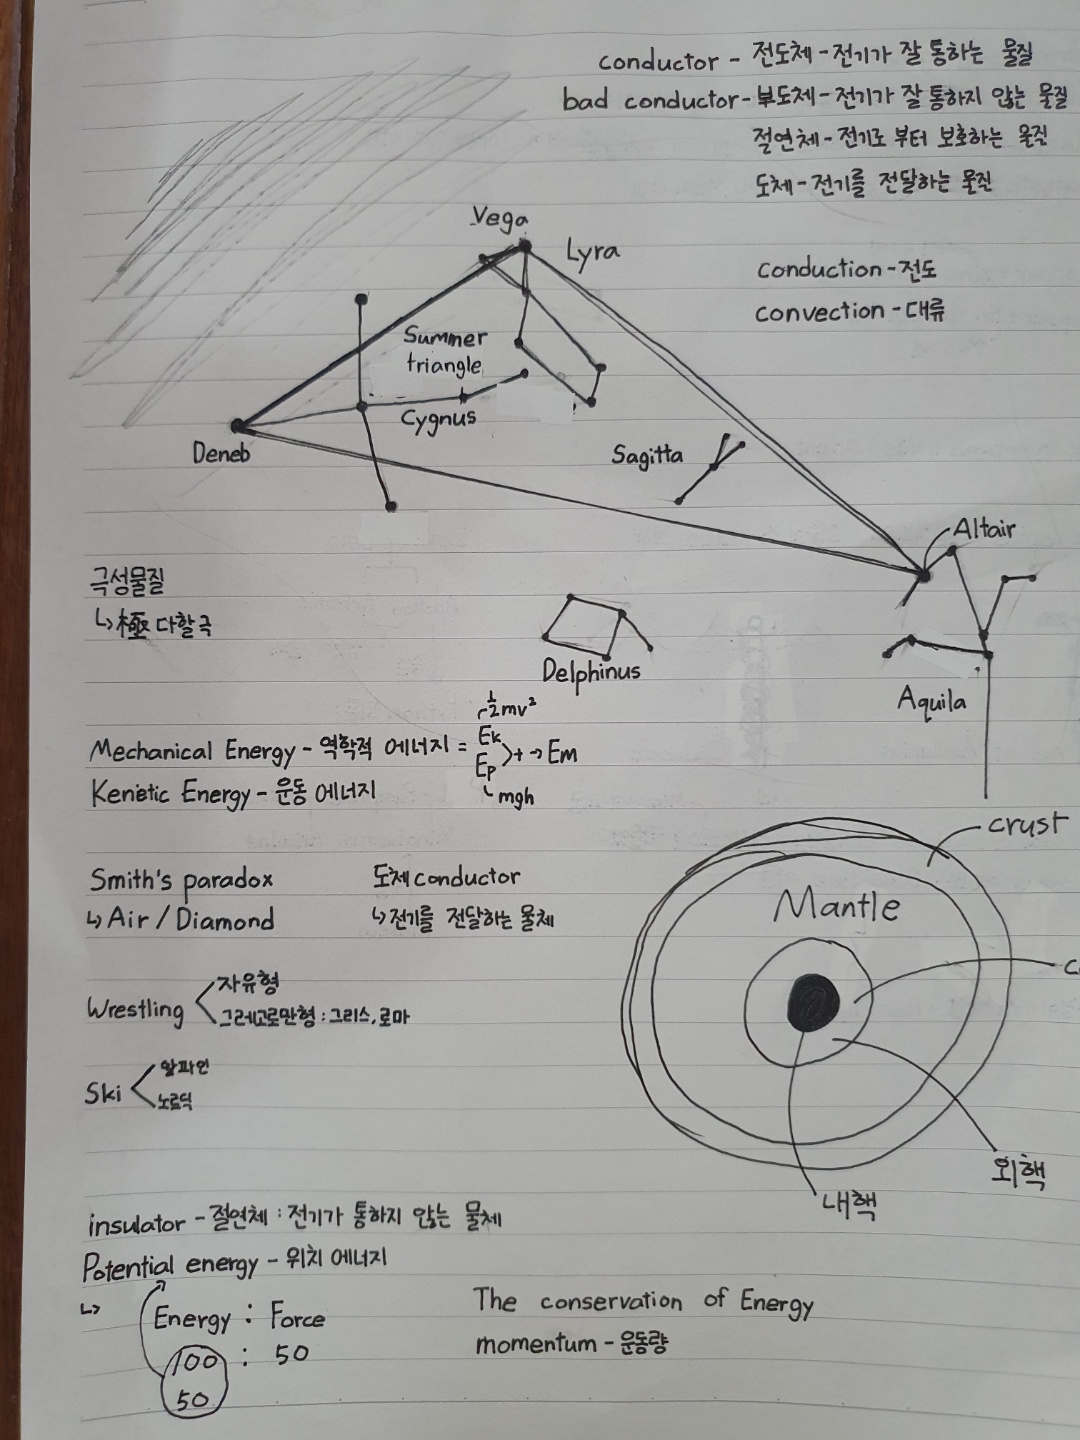 conductor - 전도체 - 전기가 잘 통하는 물질
bad conductor - 부도체 - 전기가 잘 통하지 않는 물질
절연체 - 전기로 부터 보호하는 물질
도체 - 전기를 전달하는 물질
Vega
Lyra
conduction - 전도
convection - 대류
Summer
triangle
Cygnus
Deneb
Sagitta
Altair
극성물질
↳ 極 다할 극
Delphinus
Aquila
½mv²
Mechanical Energy - 역학적 에너지 = Ek
Ep
+ → Em
mgh
Kenetic Energy - 운동 에너지
crust
Mantle
Smith's paradox
↳ Air / Diamond
도체 conductor
↳ 전기를 전달하는 물체
Wrestling
자유형
그레고로만형 : 그리스, 로마
Ski
알파인
노르딕
외핵
내핵
insulator - 절연체 : 전기가 통하지 않는 물체
Potential energy - 위치 에너지
↳ Energy : Force
100 : 50
50
The conservation of Energy
momentum - 운동량